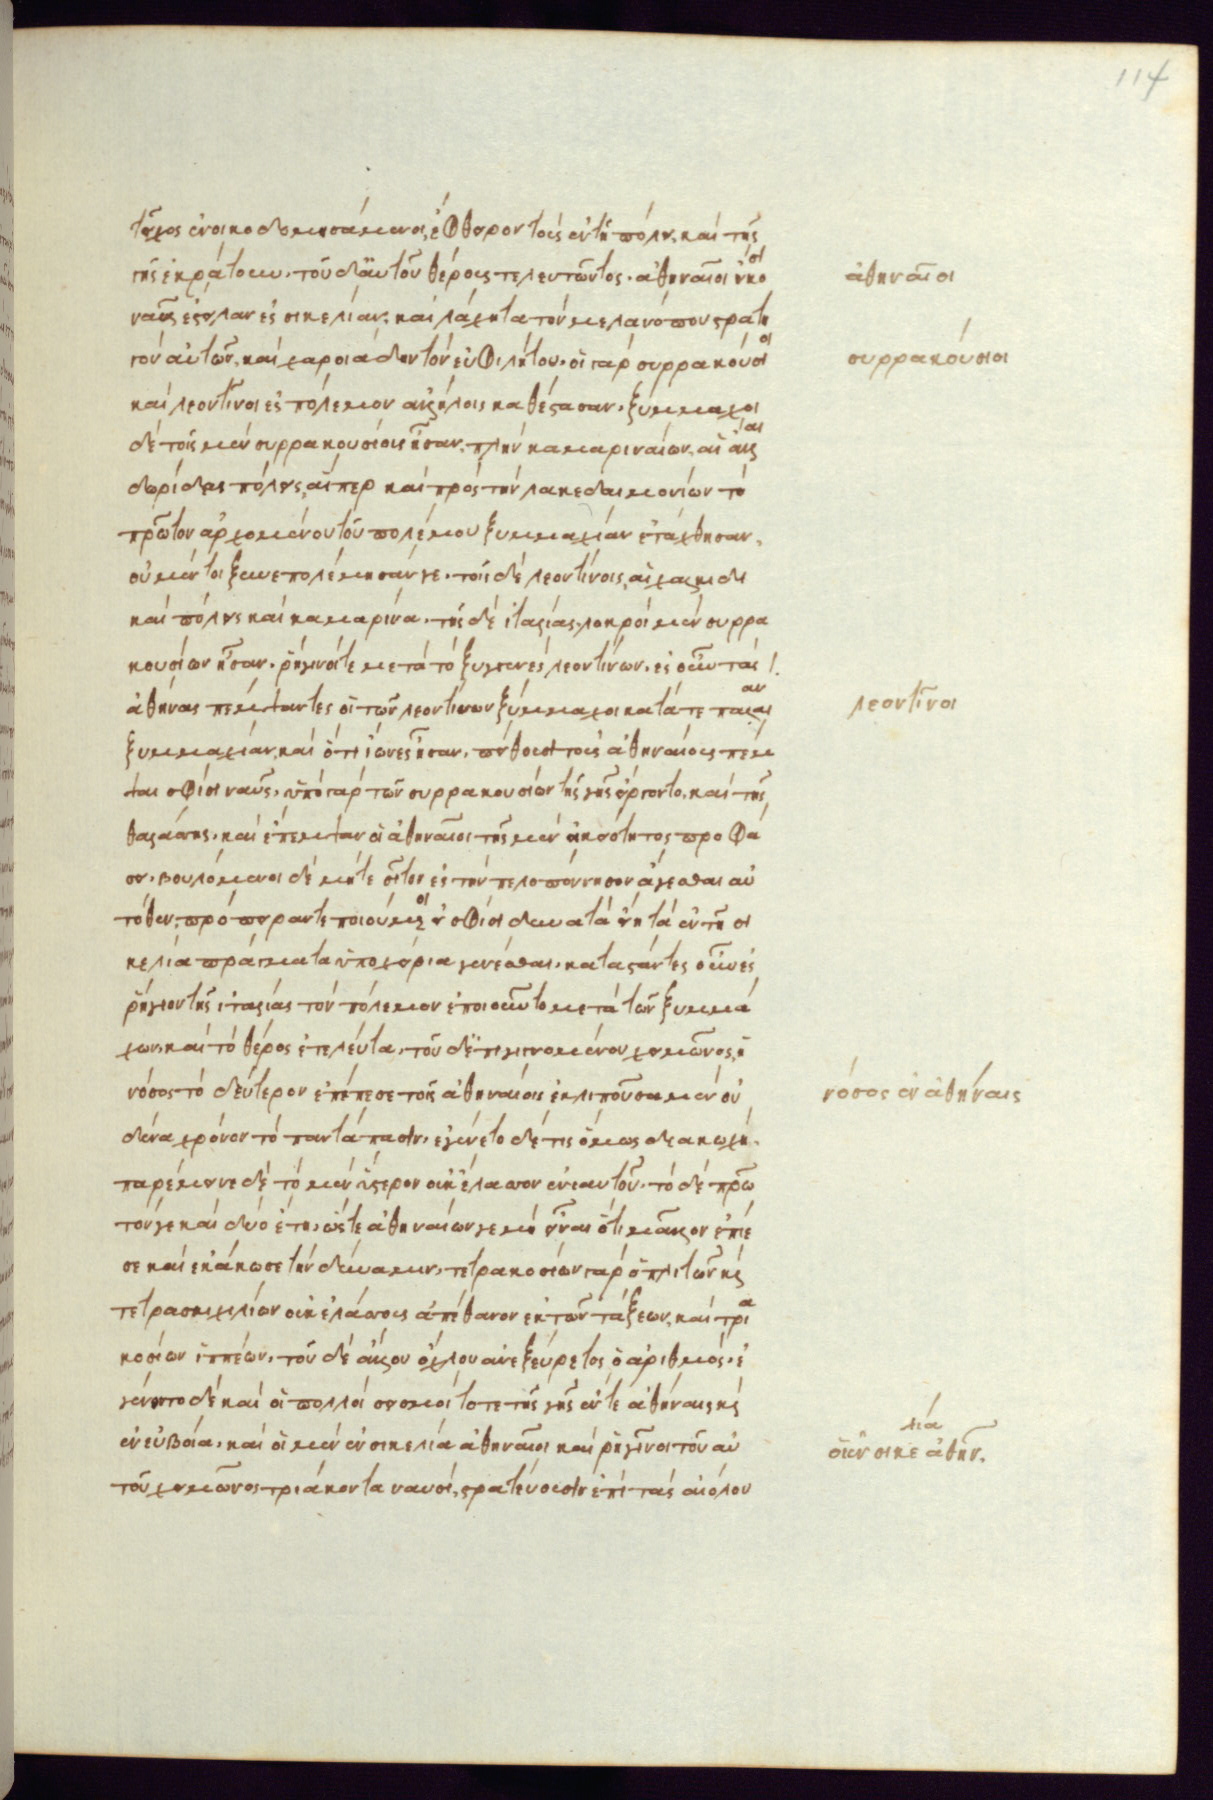 114
τεῖχος ἐνοικοδομησάμενοι, ἔφθειρον τοὺς ἐν τῇ πόλει, καὶ τῆς
γῆς ἐκράτουν. τοῦ δ' αὐτοῦ θέρους τελευτῶντος. ἀθηναῖοι εἴκοσι
ναῦς ἔστειλαν ἐς σικελίαν, καὶ λάχητα τὸν μελανόπου στρατη
γὸν αὐτῶν, καὶ χαροιάδην τὸν εὐφιλήτου. οἱ γὰρ συρρακούσιοι
καὶ λεοντῖνοι ἐς πόλεμον ἀλλήλοις καθέστασαν. ξύμμαχοι
δὲ τοῖς μὲν συρρακουσίοις ἦσαν, πλὴν καμαριναίων, αἱ ἄλλαι
δωρίδες πόλεις, αἵπερ καὶ πρὸς τὴν λακεδαιμονίων τὸ
πρῶτον ἀρχομένου τοῦ πολέμου ξυμμαχίαν ἐτάχθησαν,
οὐ μέντοι ξυνεπολέμησάν γε. τοῖς δὲ λεοντίνοις, αἱ χαλκιδι
καὶ πόλεις καὶ καμαρίνα. τῆς δὲ ἰταλίας, λοκροὶ μὲν συρρα
κουσίων ἦσαν. ῥηγῖνοί τε μετὰ τὸ ξυγγενὲς λεοντίνων. ἐς οὖν τὰς
ἀθήνας πέμψαντες οἱ τῶν λεοντίνων ξύμμαχοι κατά τε παλαιὰν
ξυμμαχίαν, καὶ ὅτι ἴωνες ἦσαν, πείθουσι τοὺς ἀθηναίους πέμ
ψαι σφίσι ναῦς. ὑπὸ γὰρ τῶν συρρακουσίων τῆς γῆς εἴργοντο, καὶ τῆς
θαλάσσης. καὶ ἔπεμψαν οἱ ἀθηναῖοι τῆς μὲν οἰκειότητος προφά
σει. βουλόμενοι δὲ μήτε σῖτον ἐς τὴν πελοπόννησον ἄγεσθαι αὐ
τόθεν, πρόπειράν τε ποιούμενοι εἰ σφίσι δυνατὰ εἴη τὰ ἐν τῇ σι
κελίᾳ πράγματα ὑποχείρια γενέσθαι. καταστάντες οὖν ἐς
ῥήγιον τῆς ἰταλίας τὸν πόλεμον ἐποιοῦντο μετὰ τῶν ξυμμά
χων. καὶ τὸ θέρος ἐτελεύτα. τοῦ δ' ἐπιγιγνομένου χειμῶνος, ἡ
νόσος τὸ δεύτερον ἐπέπεσε τοῖς ἀθηναίοις ἐκλιποῦσα μὲν οὐ
δένα χρόνον τὸ παντάπασιν, ἐγένετο δέ τις ὅμως διακωχή.
παρέμεινε δὲ τὸ μὲν ὕστερον οὐκ ἔλασσον ἐνιαυτοῦ. τὸ δὲ πρῶ
τόν γε καὶ δύο ἔτη. ὥστε ἀθηναίων γε μὴ εἶναι ὅτι μᾶλλον ἐπίε
σε καὶ ἐκάκωσε τὴν δύναμιν. τετρακοσίων γὰρ ὁπλιτῶν καὶ
τετρακισχιλίων οὐκ ἐλάσσους ἀπέθανον ἐκ τῶν τάξεων, καὶ τρια
κοσίων ἱππέων. τοῦ δὲ ἄλλου ὄχλου ἀνεξεύρετος ὁ ἀριθμός. ἐ
γένοντο δὲ καὶ οἱ πολλοὶ σεισμοὶ τότε τῆς γῆς ἔν τε ἀθήναις καὶ
ἐν εὐβοίᾳ. καὶ οἱ μὲν ἐν σικελίᾳ ἀθηναῖοι καὶ ῥηγῖνοι τοῦ αὐ
τοῦ χειμῶνος τριάκοντα ναυσὶ, στρατεύουσιν ἐπὶ τὰς αἰόλου
ἀθηναῖοι
συρρακούσιοι
λεοντῖνοι
νόσος ἐν ἀθήναις
οἱ ἐν σικελία ἀθην.